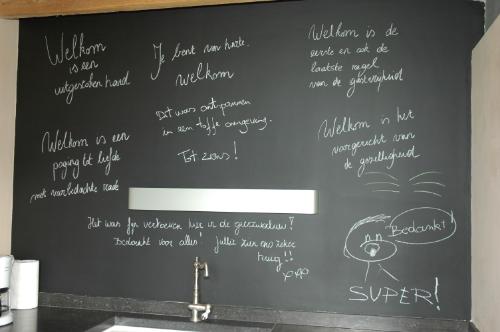 Welkom
is een
uitgestoken hand
Je bent van harte
welkom
Dit was ontspannen
in een toffe omgeving.
Tot ziens!
Welkom is de
eerste en ook de
laatste regel
van de gastvrijheid
Welkom is een
poging tot liefde
met voorbedachte rade
Welkom is het
voorgerecht van
de gezelligheid
Het was fijn vertoeven hier in de
Bedankt voor alles! Jullie zien ons zeker
terug!!
Bedankt!
SUPER!